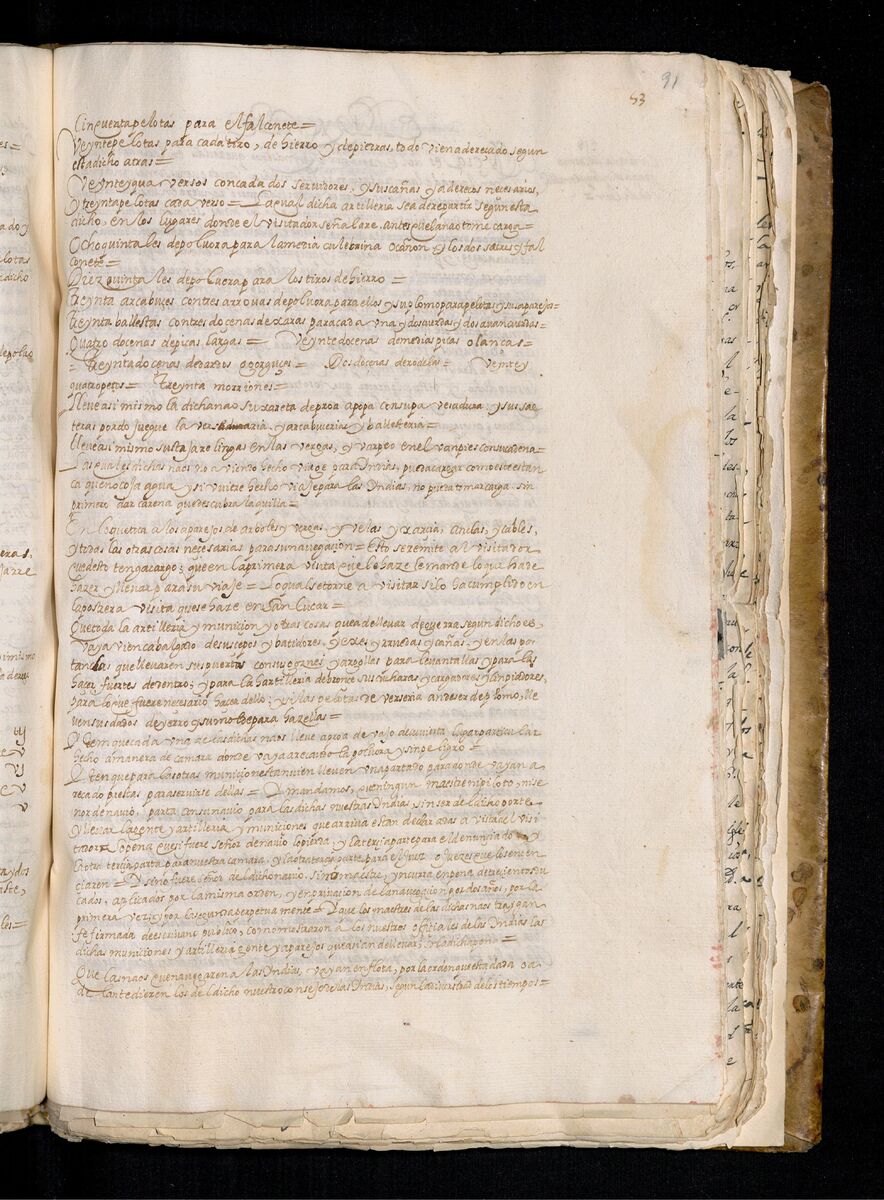 91
53
Cinquenta pelotas para el falconete=
Veynte pelotas para cada tiro, de hierro y de piedras, todo vien adereçado segun
esta dicho atras=
Veynte y qua versos con cada dos servidores, y sus cañas y adereços necesarios,
y treynta pelotas cada verso= La qual dicha artilleria sea de repartir segun esta
dicho, en los lugares donde el visitador señalare, antes que la nao tome carga=
Ocho quintales de polvora para la media culebrina o cañon, y los dos sacres y fal
conete=
Diez quintales de polvora para los tiros de hierro=
treynta arcabuzes con tres arrovas de polvora para ellos y su plomo para pelotas y sus aparejos=
treynta ballestas con tres docenas de xaras para cada una y dos cuerdas y dos avancuerdas=
Quatro docenas de picas largas= Veynte docenas de medias picas o lanças=
Treynta docenas de dardos o gorguzes= Dos docenas de rodelas= Veynte y
quatro petos= treynta morriones=
Lleve asi mismo la dicha nao su xareta de proa a popa con su pavesadura, y sus sae
teras por do juegue la verseria, y arcabuzeria y ballesteria=
Lleve asi mismo sus tajarelingas en las vergas, y un arpeo en el vaupres con su cadena=
Las quales dichas naos no aviendo hecho viage para Indias, pueda cargar como este estan
ca que no coja agua, y si uviere hecho viaje para las Indias, no pueda tomar carga sin
primero dar carena que descubra la quilla=
En lo que toca a los aparejos de arboles y vergas, y velas y xarcia, anclas, y cables,
y todas las otras cosas necesarias para su navegacion= Esto se remite al visitador
que desto tenga cargo, que en la primera visita que le haze le mande lo que ha de
hazer y llevar para su viaje= Lo qual se torne a visitar si lo ha cumplido en
la postrera visita que se haze en San Lucar=
Que toda la artilleria y municion y otras cosas que a de llevar de guerra segun dicho es,
vaya vien cabalgado de sus cepos y batidores, y exes y rruedas y cañas, y en las por
tanolas que llevaren sus puertas con sus gonzes y argollas para levantallas y para las
hazer fuertes de dentro, y para la hartilleria de bronce sus cucharas y cargadores y limpiadores,
para lo que fuere necesario hazer dello, y si las pelotas de verseria an de ser de plomo, lle
ven sus dados de yerro y su molde para hazellas=
Yten que cada una de las dichas naos lleve a proa de vajo de cuvierta lugar particular
hecho a manera de camara donde vaya a recaudo la polvora y sin peligro=
Yten que para las otras municiones tanvien lleven un apartado para donde vayan a
recado prestas para servirse dellas= Y mandamos, que ningun maestre ni piloto, ni se
ñor de navio, parta con su navio para las dichas nuestras Indias, sin ser de la dicho porte
y llevar la gente y artilleria y municiones que arriva estan declaradas a vista del visi
tador, so pena que si fuere señor de navio lo pierda, y la tercia parte para el denunciador, y
la otra tercia parte para nuestra camara, y la otra tercia parte para el Juez o Juezes que lo senten
ciaren= Y si no fuere señor de la dicho navio, sino maestre, yncurra en pena de trecientos du
cados, aplicados por la misma orden, y en privacion de la navegacion por dos años, por la
primera vez, y por la segunda perpetuamente= Y que los maestres de las dichas naos traigan
fe firmada de escrivano publico, como mostraron a los nuestros officiales de las Indias las
dichas municiones y artilleria gente y aparejos que asi an de llevar, so la dicha pena=
Que las naos que navegaren a las Indias, vayan en flota, por la orden que esta dada o a
delante dieren los del dicho nuestro consejo de las Indias, segun la diversidad de los tiempos=